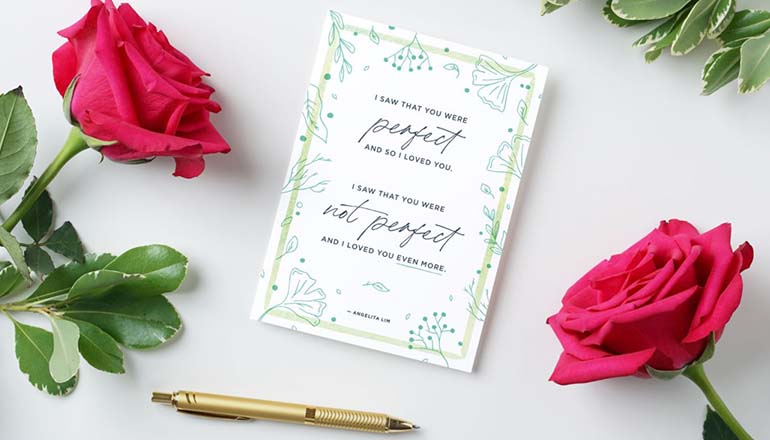 I SAW THAT YOU WERE
perfect
AND SO I LOVED YOU.
I SAW THAT YOU WERE
not perfect
AND I LOVED YOU EVEN MORE.
— ANGELITA LIM